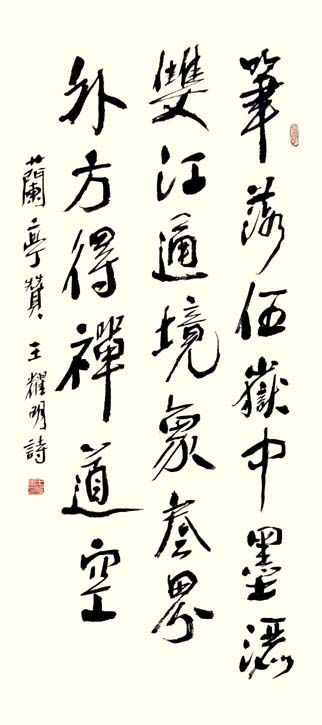 筆落伍嶽中墨灑
雙江通境象叁界
外方得禪道空
蘭亭贊 王耀明詩